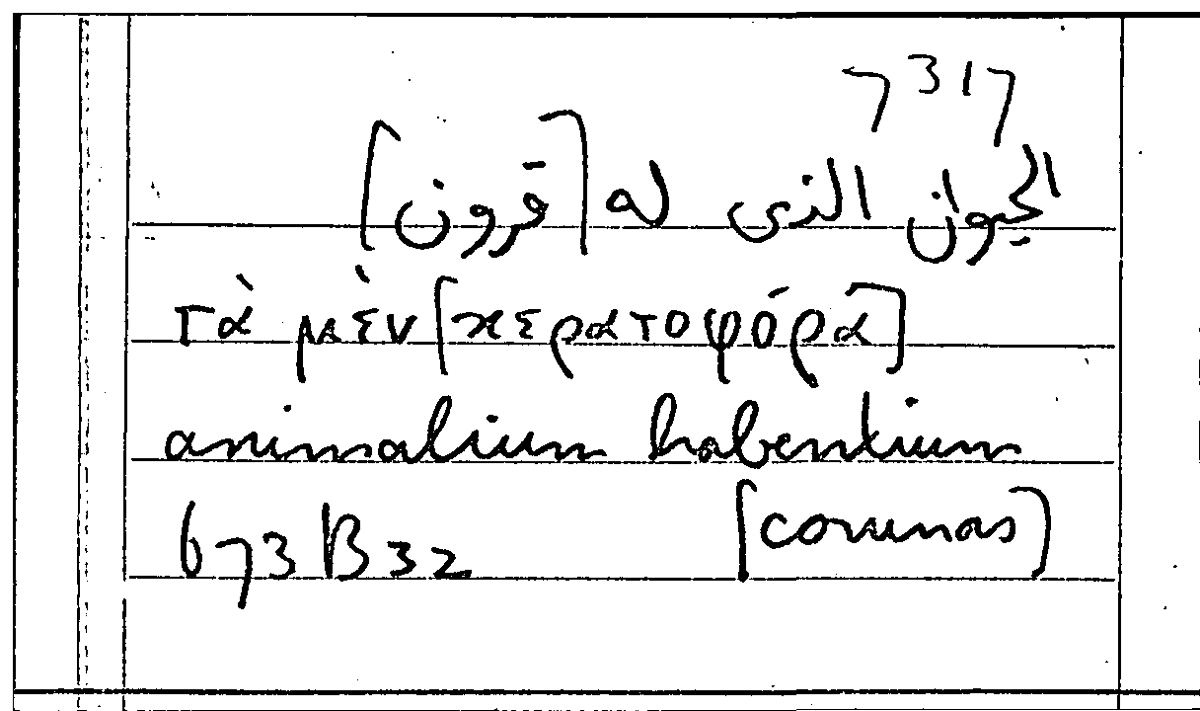 7317
الحيوان الذى له [قرون]
τὰ μὲν [κερατοφόρα]
animalium habentium
673 B 32 [cornuas]